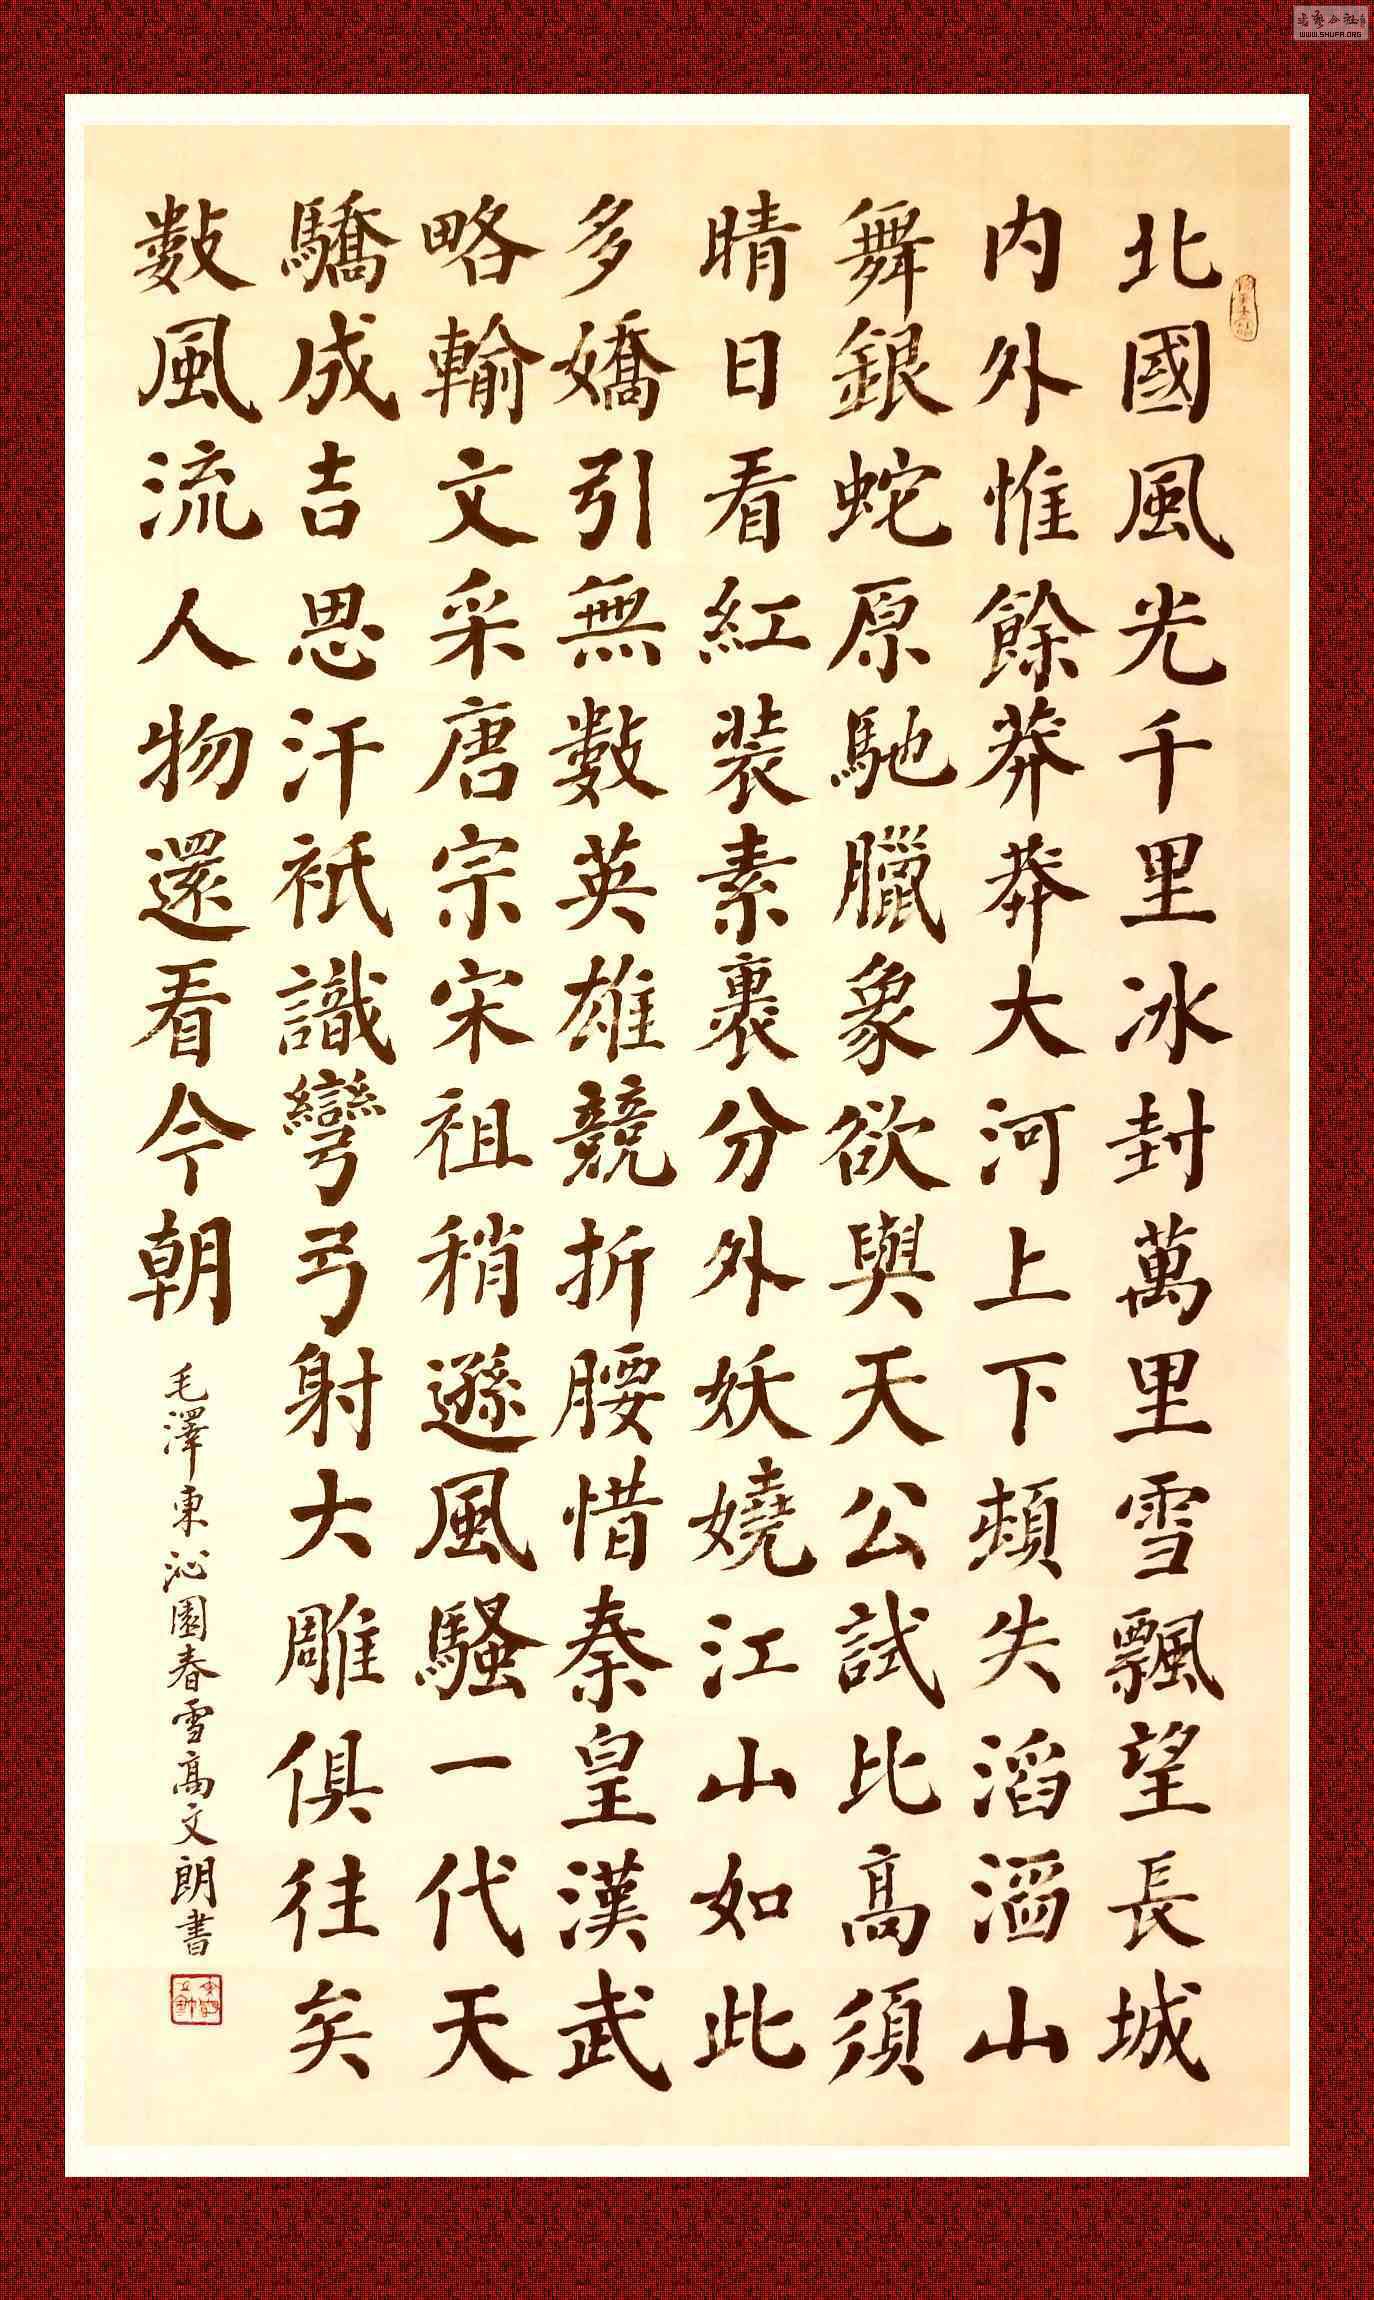 北國風光千里冰封萬里雪飄望長城
内外惟餘莽莽大河上下頓失滔滔山
舞銀蛇原馳臘象欲與天公試比高須
晴日看紅裝素裹分外妖嬈江山如此
多嬌引無數英雄競折腰惜秦皇漢武
略輸文采唐宗宋祖稍遜風騷一代天
驕成吉思汗祇識彎弓射大雕俱往矣
數風流人物還看今朝
毛澤東沁園春雪高文朗書
WWW.SHUFA.ORG